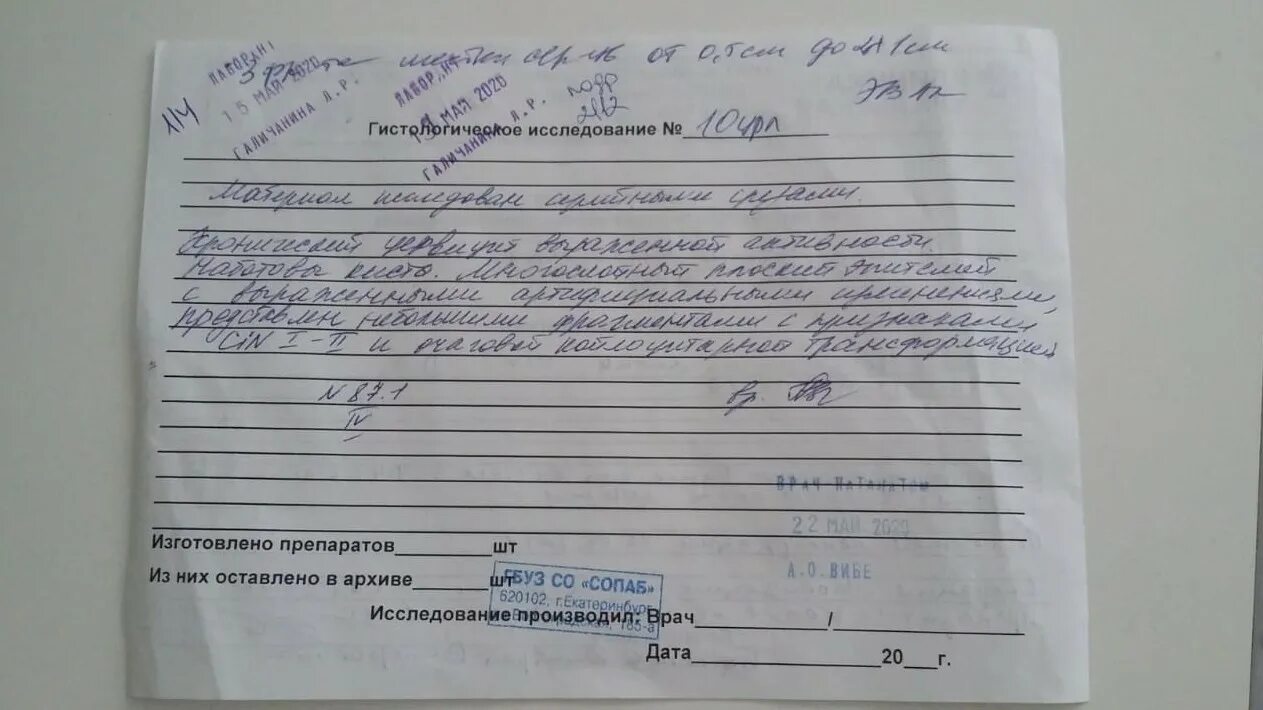 ЛАБОРАНТ
15 МАЙ 2020
ГАЛИЧАНИНА Л.Р.
ЛАБОРАНТ
МАЙ 2020
ГАЛИЧАНИНА Л.Р.
от 0,5 см до 1 см
Гистологическое исследование №
Материал исследован серийными срезами.
Хронический цервицит выраженной активности.
Наботовы кисты. Многослойный плоский эпителий
с выраженными артифициальными изменениями,
представлен небольшими фрагментами с признаками
CIN I-II и очаговой койлоцитарной трансформацией
N 87.1
вр.
IV
ВРАЧ ПАТАНАТОМ
22 МАЙ 2020
А.О.ВИБЕ
Изготовлено препаратов________шт
Из них оставлено в архиве______шт
ГБУЗ СО «СОПАБ»
620102, г.Екатеринбург
185-а
Исследование производил: Врач____________/________________
Дата________________20___г.